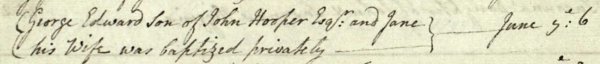 George Edward Son of John Hooper Esqr. and Jane
his Wife was baptized privately
June ye. 6